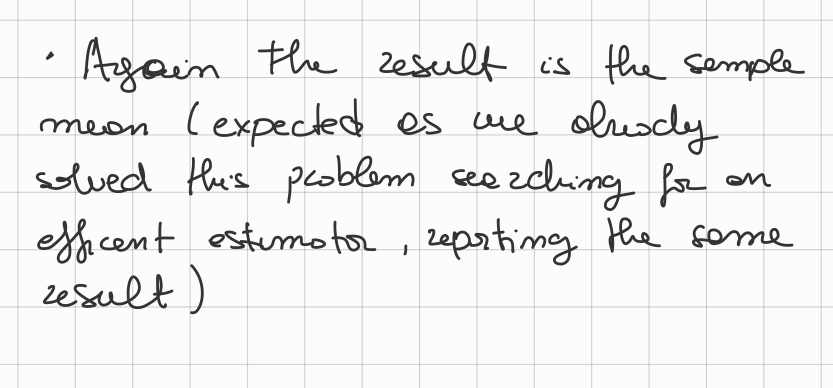 · Again the result is the sample
mean (expected as we already
solved this problem searching for an
efficent estimator, reporting the same
result)